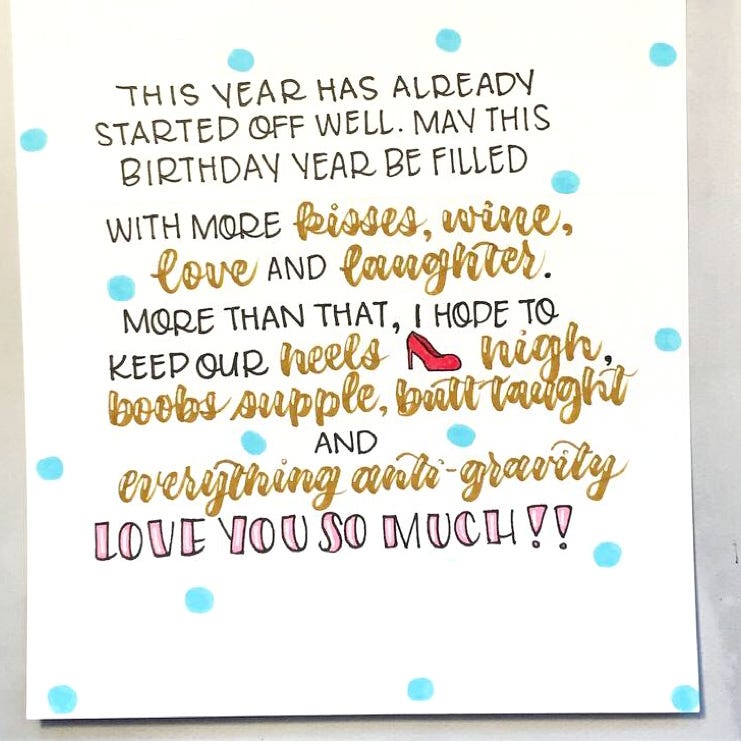 THIS YEAR HAS ALREADY
STARTED OFF WELL. MAY THIS
BIRTHDAY YEAR BE FILLED
WITH MORE kisses, wine,
love AND laughter.
MORE THAN THAT, I HOPE TO
KEEP OUR heels high,
boobs supple, butt taught
AND
everything anti-gravity
LOVE YOU SO MUCH!!